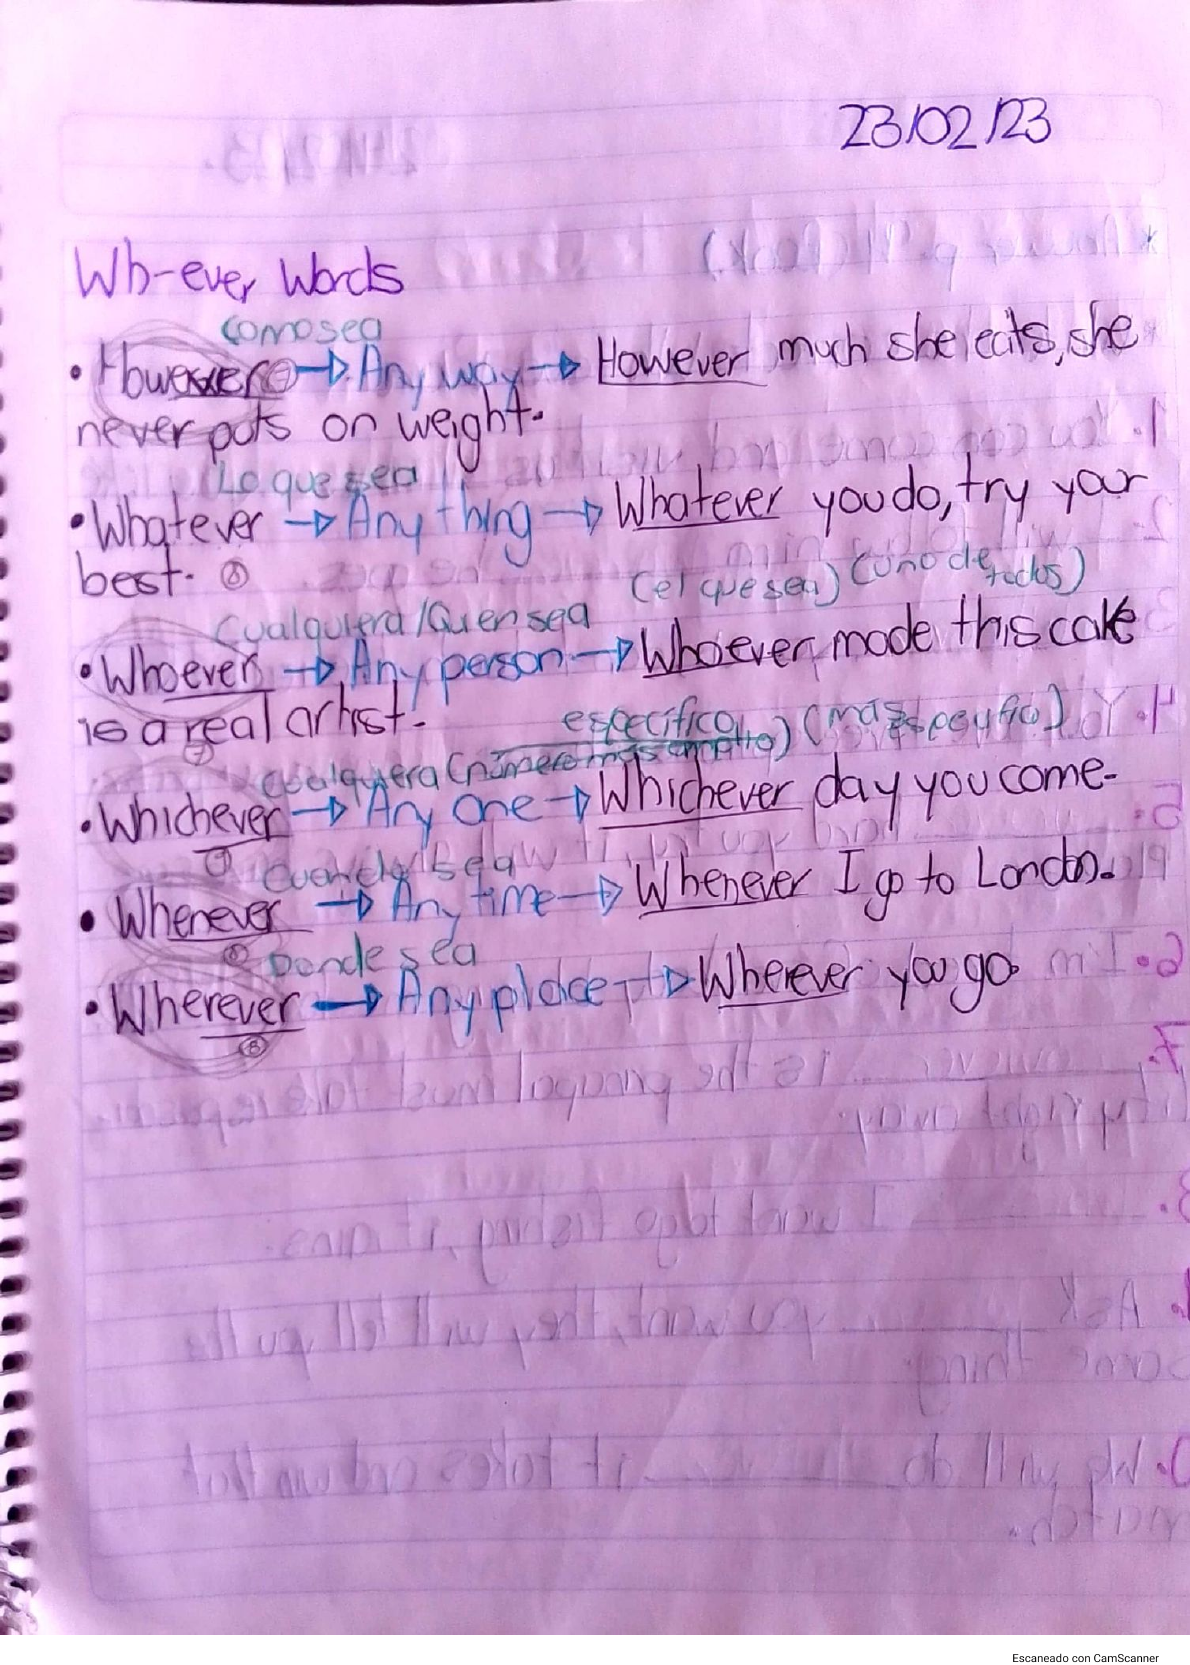 23/02/23
Wh-ever Words
Como sea
• However → Any way → However much she eats, she
never puts on weight.
Lo que sea
• Whatever → Any thing → Whatever you do, try your
best.
(el que sea) (uno de todos)
Cualquiera/Quien sea
• Whoever → Any person → Whoever made this cake
is a real artist.
específico) (más específico)
Cualquiera (número más
• Whichever → Any one → Whichever day you come.
Cuando sea
• Whenever → Any time → Whenever I go to London.
Donde sea
• Wherever → Any place → Wherever you go
Escaneado con CamScanner